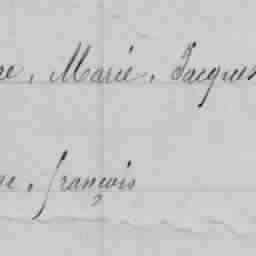 Marie, Jacques
François